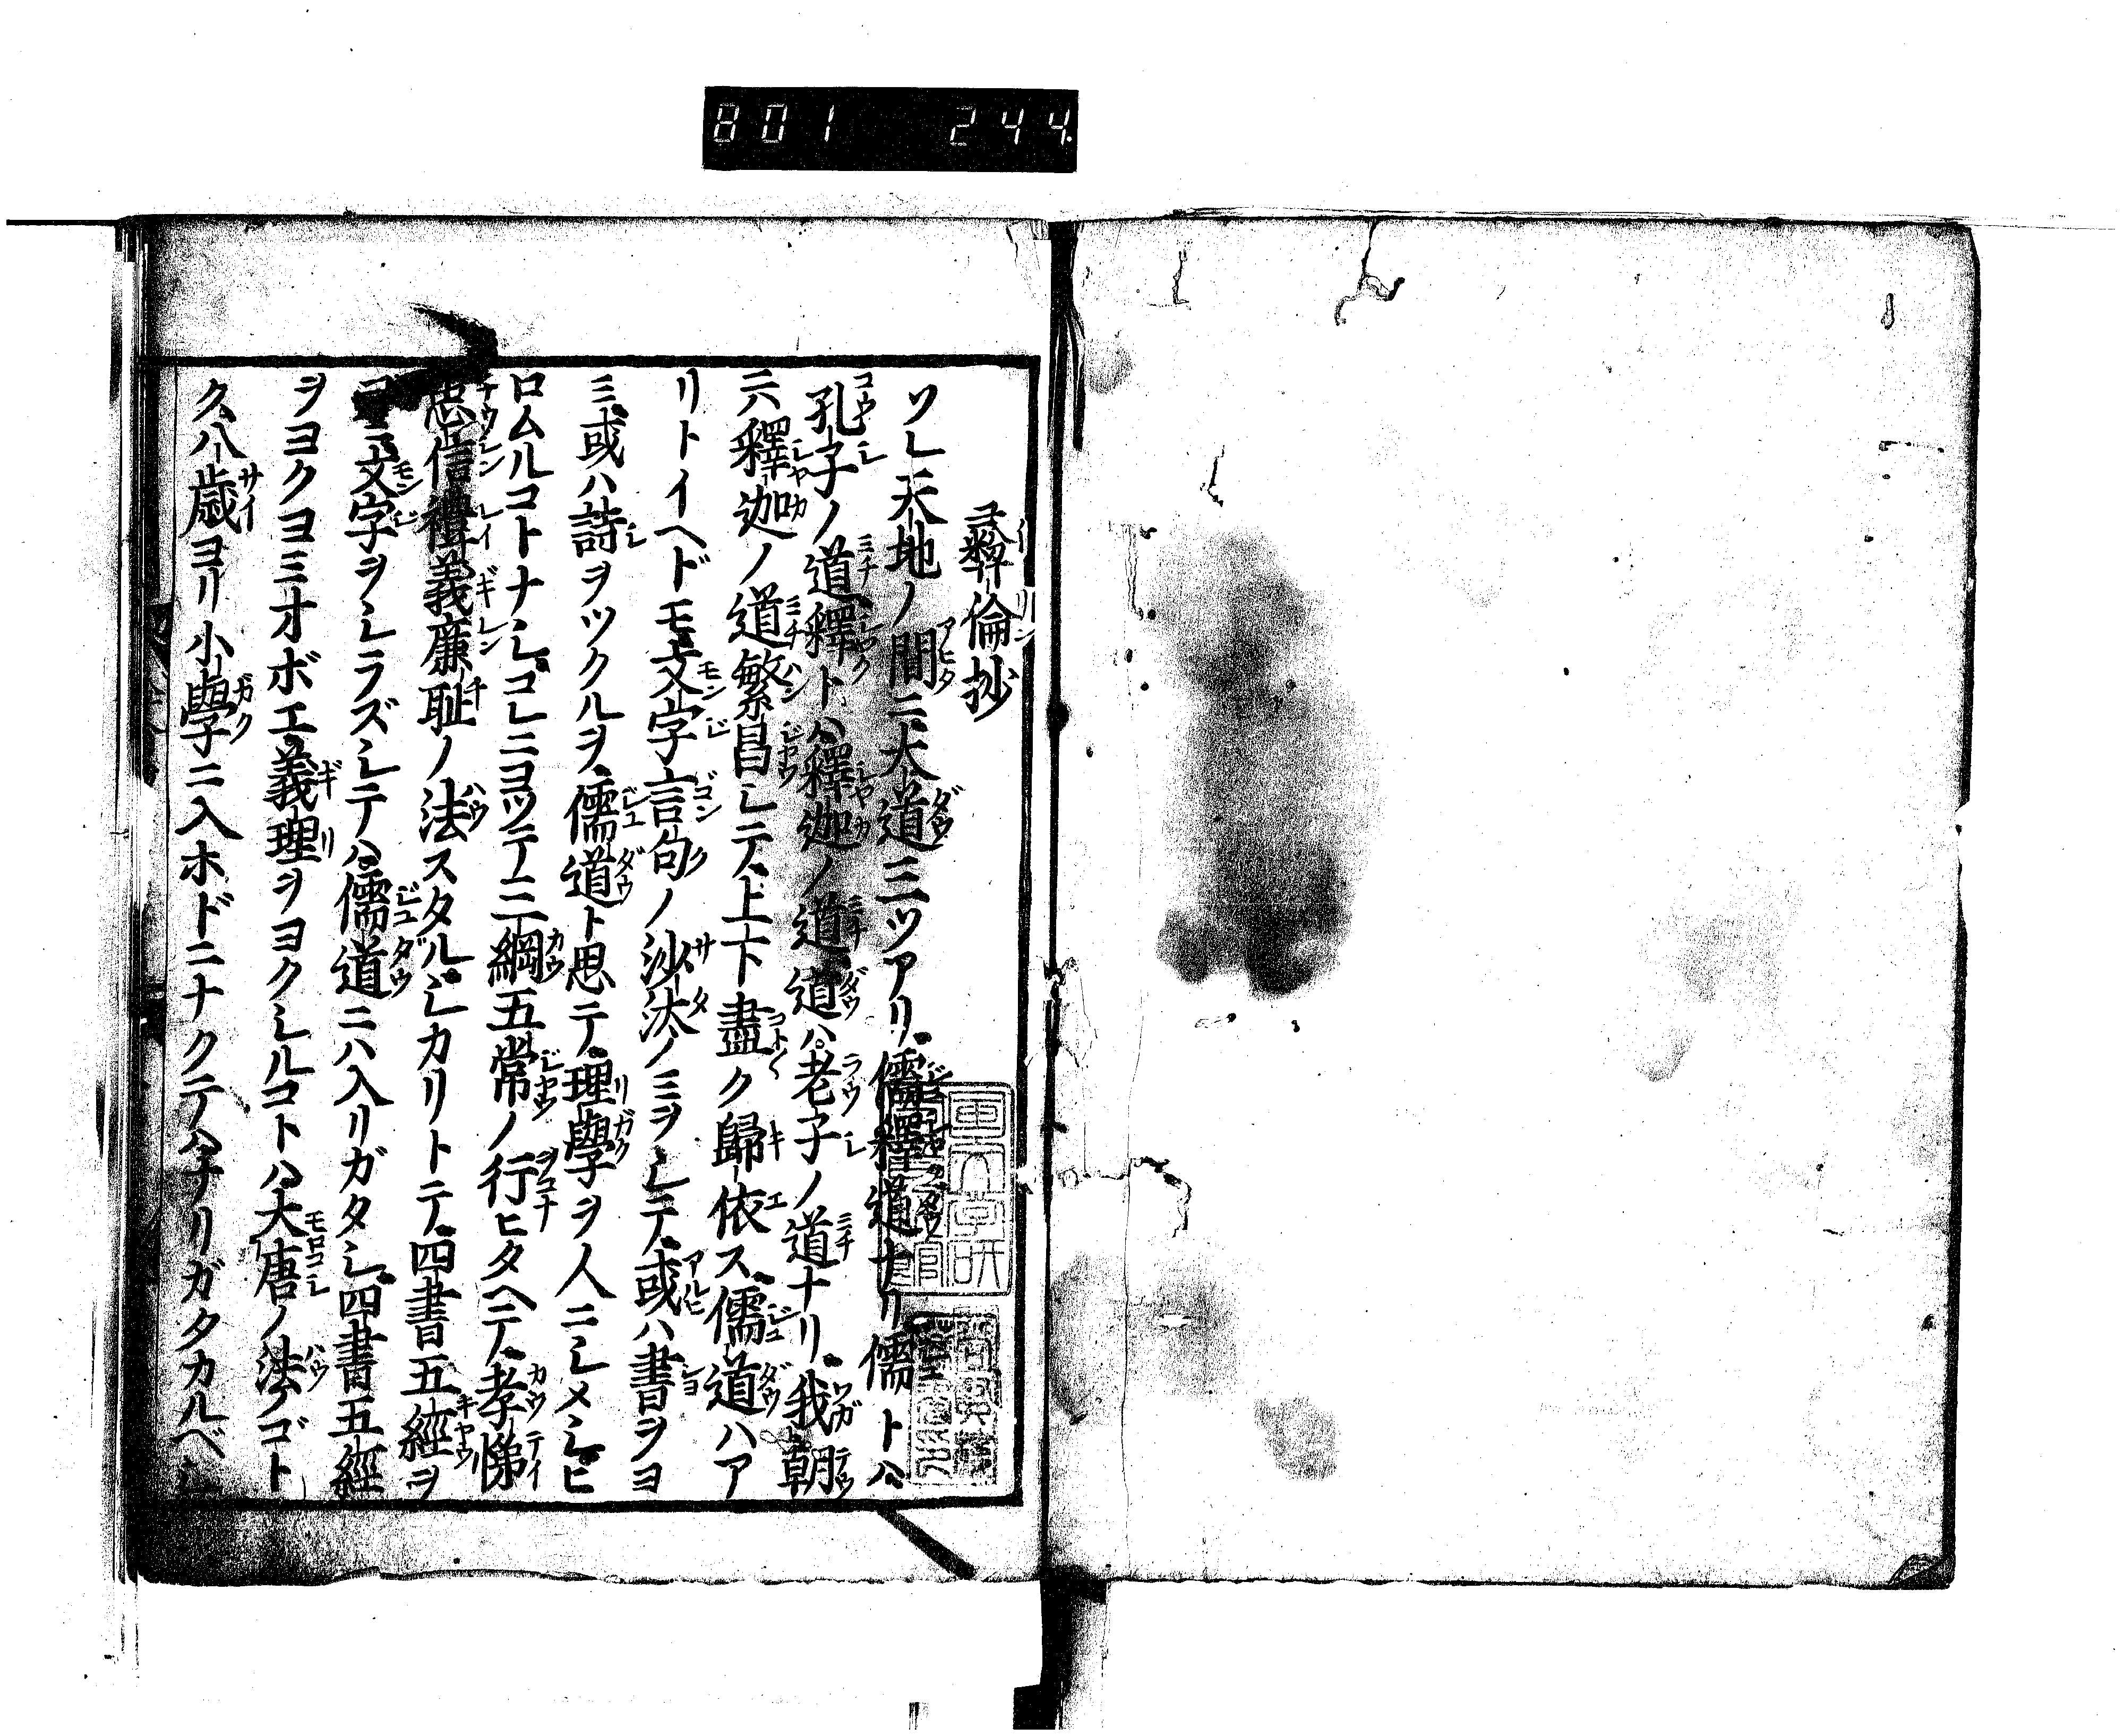 801 244
彛倫抄
ソレ天地ノ間ニ大道三ツアリ儒釋道ナリ儒トハ
孔子ノ道釋トハ釋迦ノ道道ハ老子ノ道ナリ我朝
ニハ釋迦ノ道繁昌シテ上下盡ク歸依ス儒道ハア
リトイヘドモ文字言句ノ沙汰ノミヲシテ或ハ書ヲヨ
ミ或ハ詩ヲツクルヲ儒道ト思テ理學ヲ人ニシメシヒ
ロムルコトナシコレニヨツテ三綱五常ノ行ヒタヘテ孝悌
忠信禮義廉耻ノ法スタルシカリトテ四書五經ヲ
ヨミ文字ヲシラズシテハ儒道ニハ入リガタシ四書五經
ヲヨクヨミオボエ義理ヲヨクシルコトハ大唐ノ法ノゴト
ク八歳ヨリ小學ニ入ホドニナクテハナリガタカルベシ